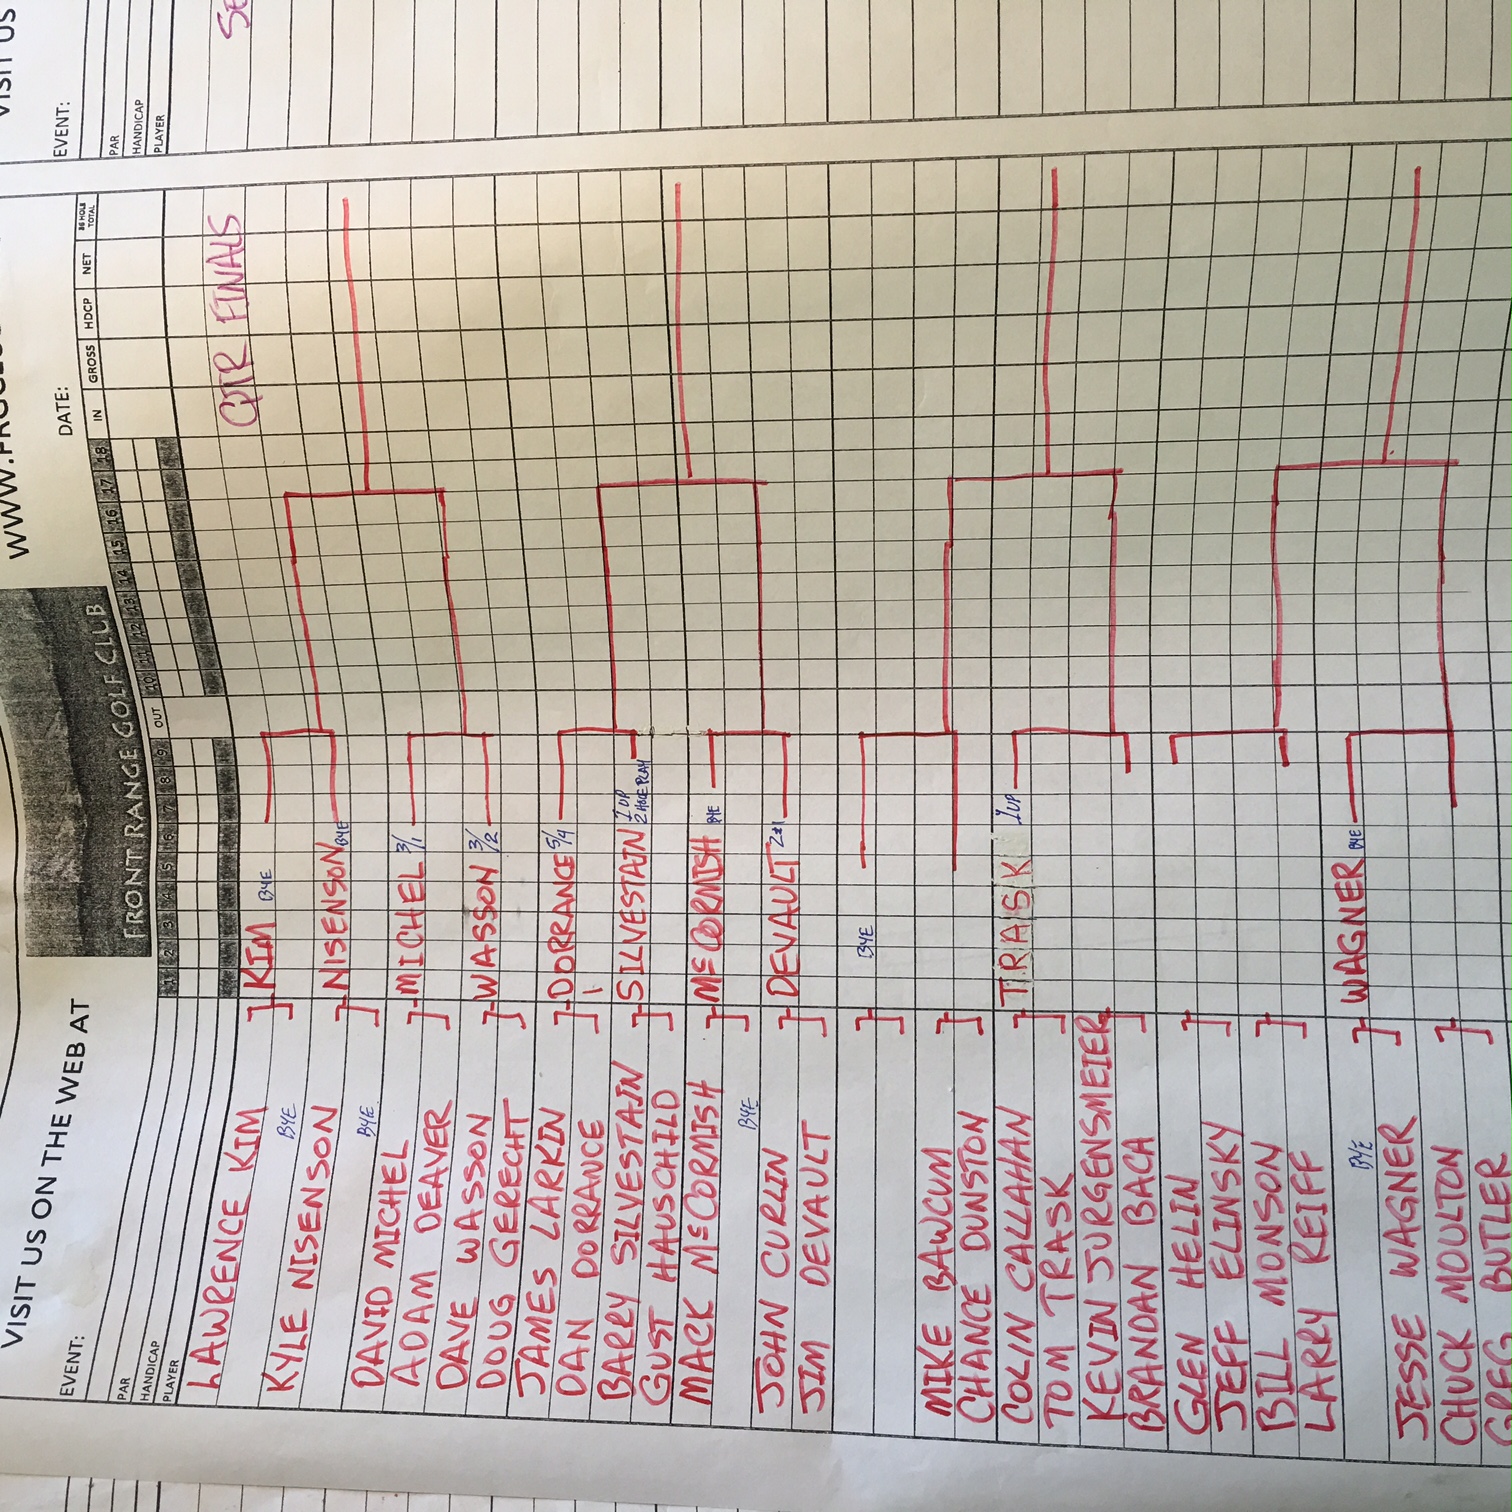 VISIT US ON THE WEB AT
FRONT RANGE GOLF CLUB
EVENT:
DATE:
PAR
HANDICAP
PLAYER
1 2 3 4 5 6 7 8 9 OUT 10 11 12 13 14 15 16 17 18 IN GROSS HDCP NET 36 HOLE TOTAL
QTR FINALS
LAWRENCE KIM
BYE
KIM BYE
KYLE NISENSON
BYE
NISENSON BYE
DAVID MICHEL
ADAM DEAVER
MICHEL 3/1
DAVE WASSON
DOUG GERECHT
WASSON 3/2
JAMES LARKIN
DAN DORRANCE
DORRANCE 5/4
BARRY SILVESTAIN
GUST HAUSCHILD
SILVESTAIN 1 UP
2 HOLE PLAY
MACK McCORMISH
BYE
McCORMISH BYE
JOHN CURLIN
JIM DEVAULT
DEVAULT 2+1
BYE
MIKE BAWCUM
CHANCE DUNSTON
COLIN CALLAHAN
TOM TRASK
TRASK 1 UP
KEVIN JURGENSMEIER
BRANDAN BACA
GLEN HELIN
JEFF ELINSKY
BILL MONSON
LARRY REIFF
BYE
JESSE WAGNER
WAGNER BYE
CHUCK MOULTON
GREG BUTLER
VISIT US
EVENT:
PAR
HANDICAP
PLAYER